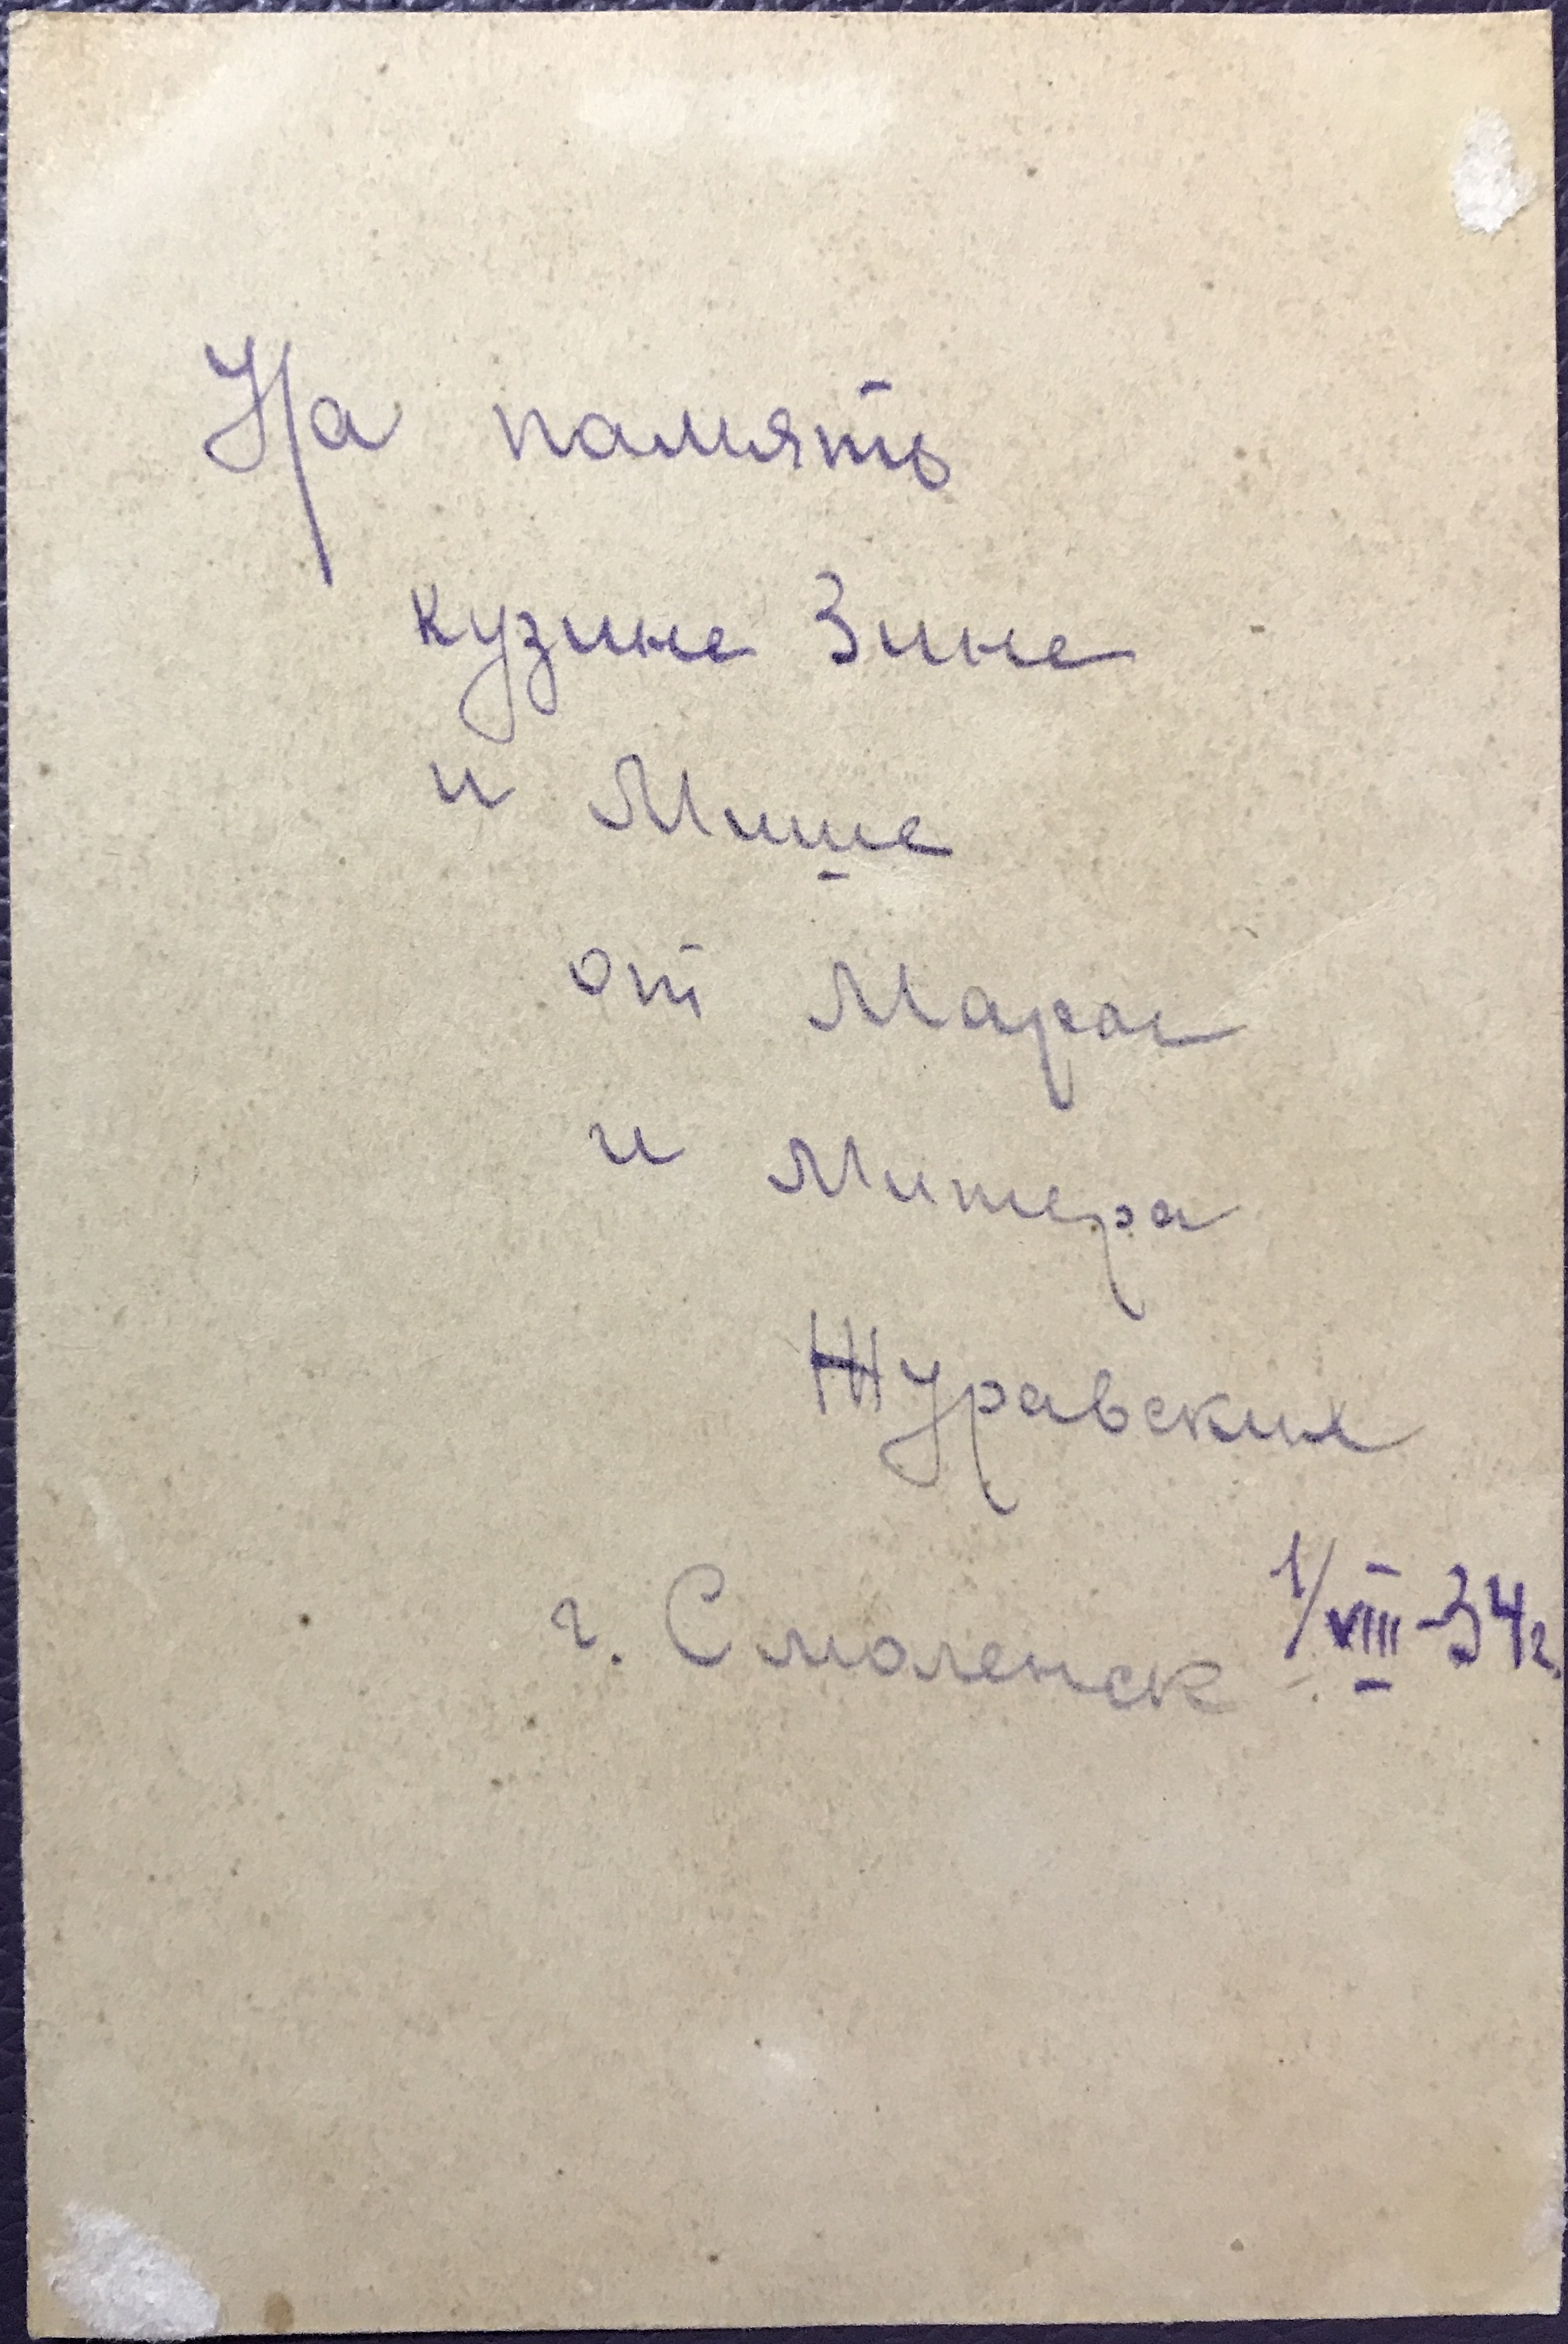 На память
кузине Зине
и Мише
от Мары
и Митера
Журавских
г. Смоленск 1/VIII-34г.